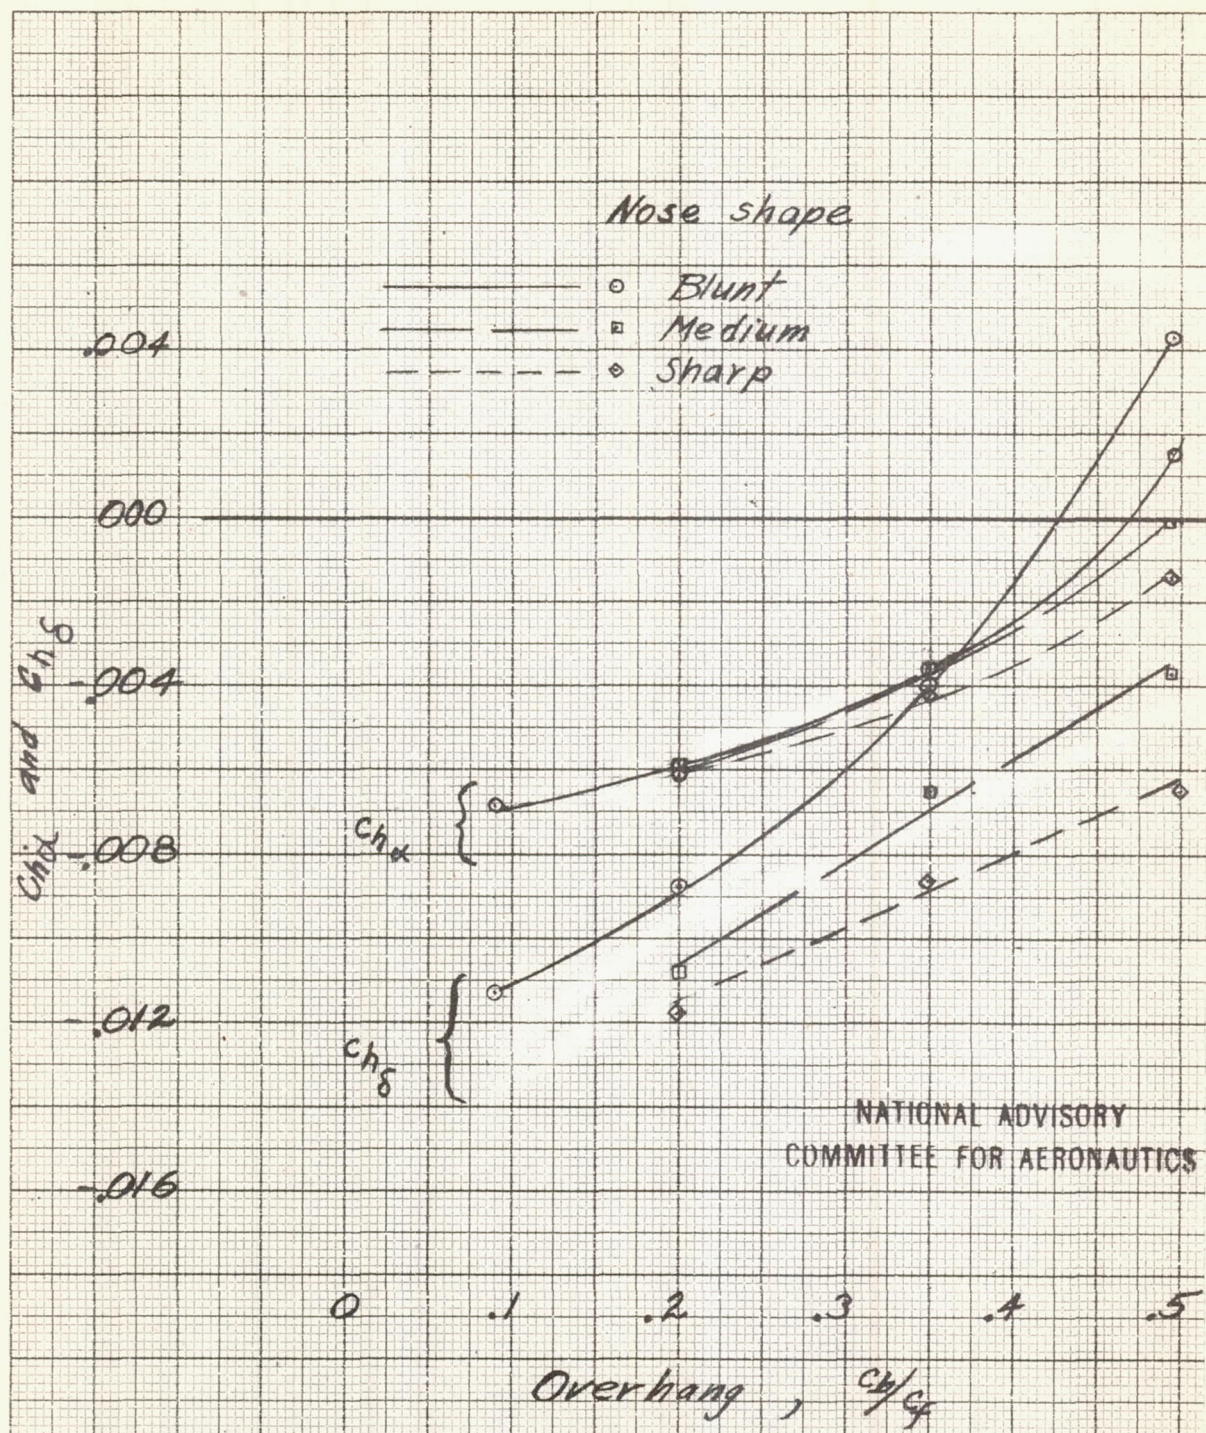 Nose shape
Blunt
Medium
Sharp
.004
000
-.004
-.008
-.012
-.016
Chα and Chδ
Chα
Chδ
NATIONAL ADVISORY
COMMITTEE FOR AERONAUTICS
0 .1 .2 .3 .4 .5
Overhang , cb/cf